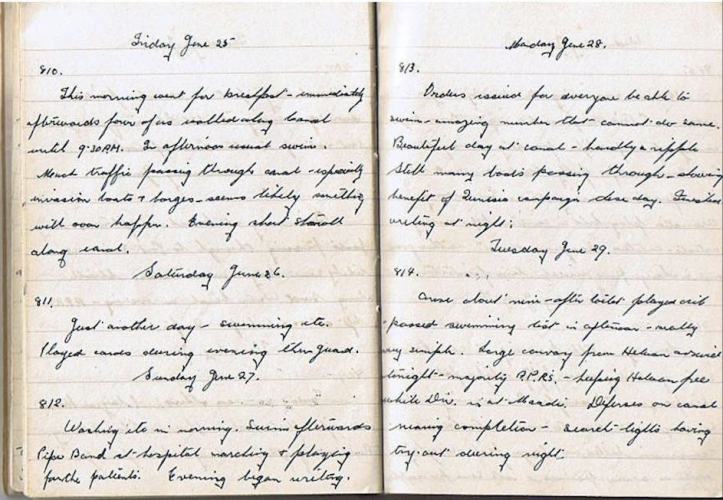 Friday June 25
810.
This morning went for breakfast - immediately
afterwards four of us walked along canal
until 9.30 AM. In afternoon usual swim.
Much traffic passing through canal - especially
invasion boats & barges - seems likely something
will soon happen. Evening short stroll
along canal.
Saturday June 26.
811.
Just another day - swimming etc.
Played cards during evening then guard.
Sunday June 27.
812.
Washing etc in morning. Swim afterwards
Pipe Band at hospital marching & playing
for the patients. Evening began writing.
Monday June 28.
813.
Orders issued for everyone be able to
swim - amazing number that cannot do same.
Beautiful day at canal - hardly a ripple
Still many boats passing through - showing
benefit of Tunisia campaign these day. Finished
writing at night.
Tuesday June 29.
814.
Arose about nine - after toilet played crib
- passed swimming test in afternoon - really
very simple. Large convoy from Helwan arrived
tonight - majority - keeping Helwan free
while Div. is at Maadi. Defences on canal
nearing completion - search lights having
try-out during night.